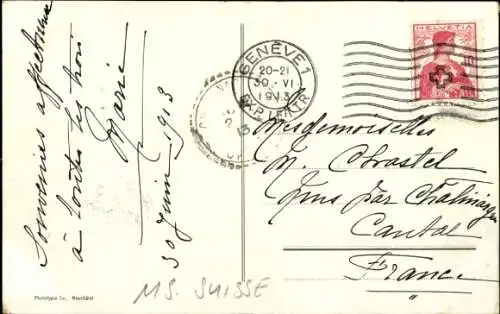 Souvenirs affectueux
à toutes les trois
Marie
30 Juin 1913
HELVETIA
10
GENÈVE 1
20-21
30. VI
1913
EXP. LETTR.
Mesdemoiselles
M. Chastel
par
Cantal
France
MS. SUISSE
Phototypie Co., Neuchâtel